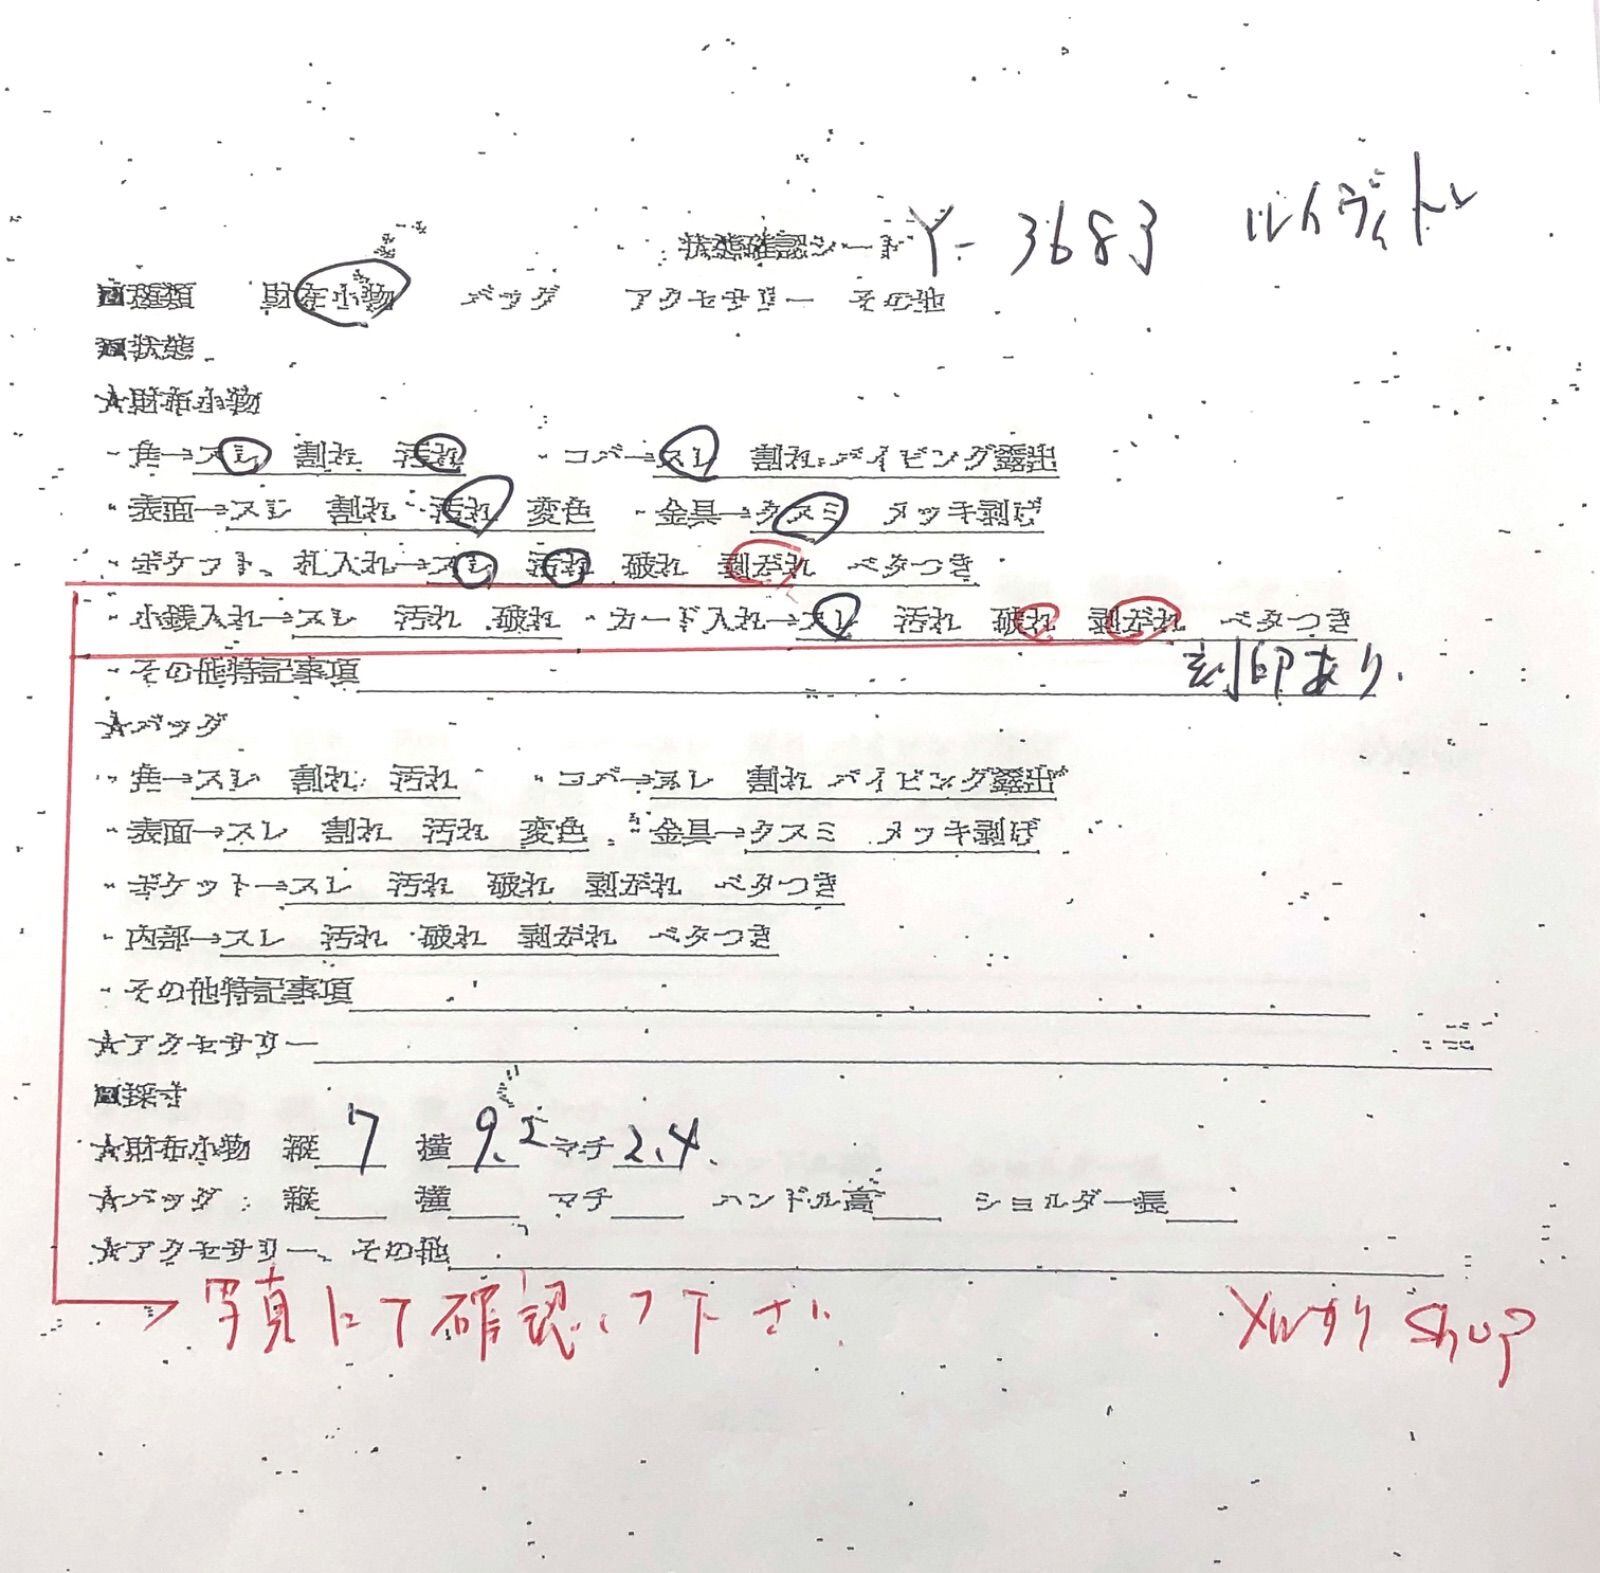 状態確認シート Y-3683 ルイヴィトン
■種類 財布小物 バッグ アクセサリー その他
■状態
★財布小物
・角→スレ 割れ 汚れ ・コバ→スレ 割れ パイピング露出
・表面→スレ 割れ 汚れ 変色 ・金具→クスミ メッキ剥げ
・ポケット、札入れ→スレ 汚れ 破れ 剥がれ ベタつき
・小銭入れ→スレ 汚れ 破れ ・カード入れ→スレ 汚れ 破れ 剥がれ ベタつき
・その他特記事項 刻印あり.
★バッグ
・角→スレ 割れ 汚れ ・コバ→スレ 割れ パイピング露出
・表面→スレ 割れ 汚れ 変色 ・金具→クスミ メッキ剥げ
・ポケット→スレ 汚れ 破れ 剥がれ ベタつき
・内部→スレ 汚れ 破れ 剥がれ ベタつき
・その他特記事項
★アクセサリー
■採寸
★財布小物 縦 7 横 9.5 マチ 2.4
★バッグ 縦 横 マチ ハンドル高 ショルダー長
★アクセサリー、その他
写真にて確認して下さい
メルカリ shop